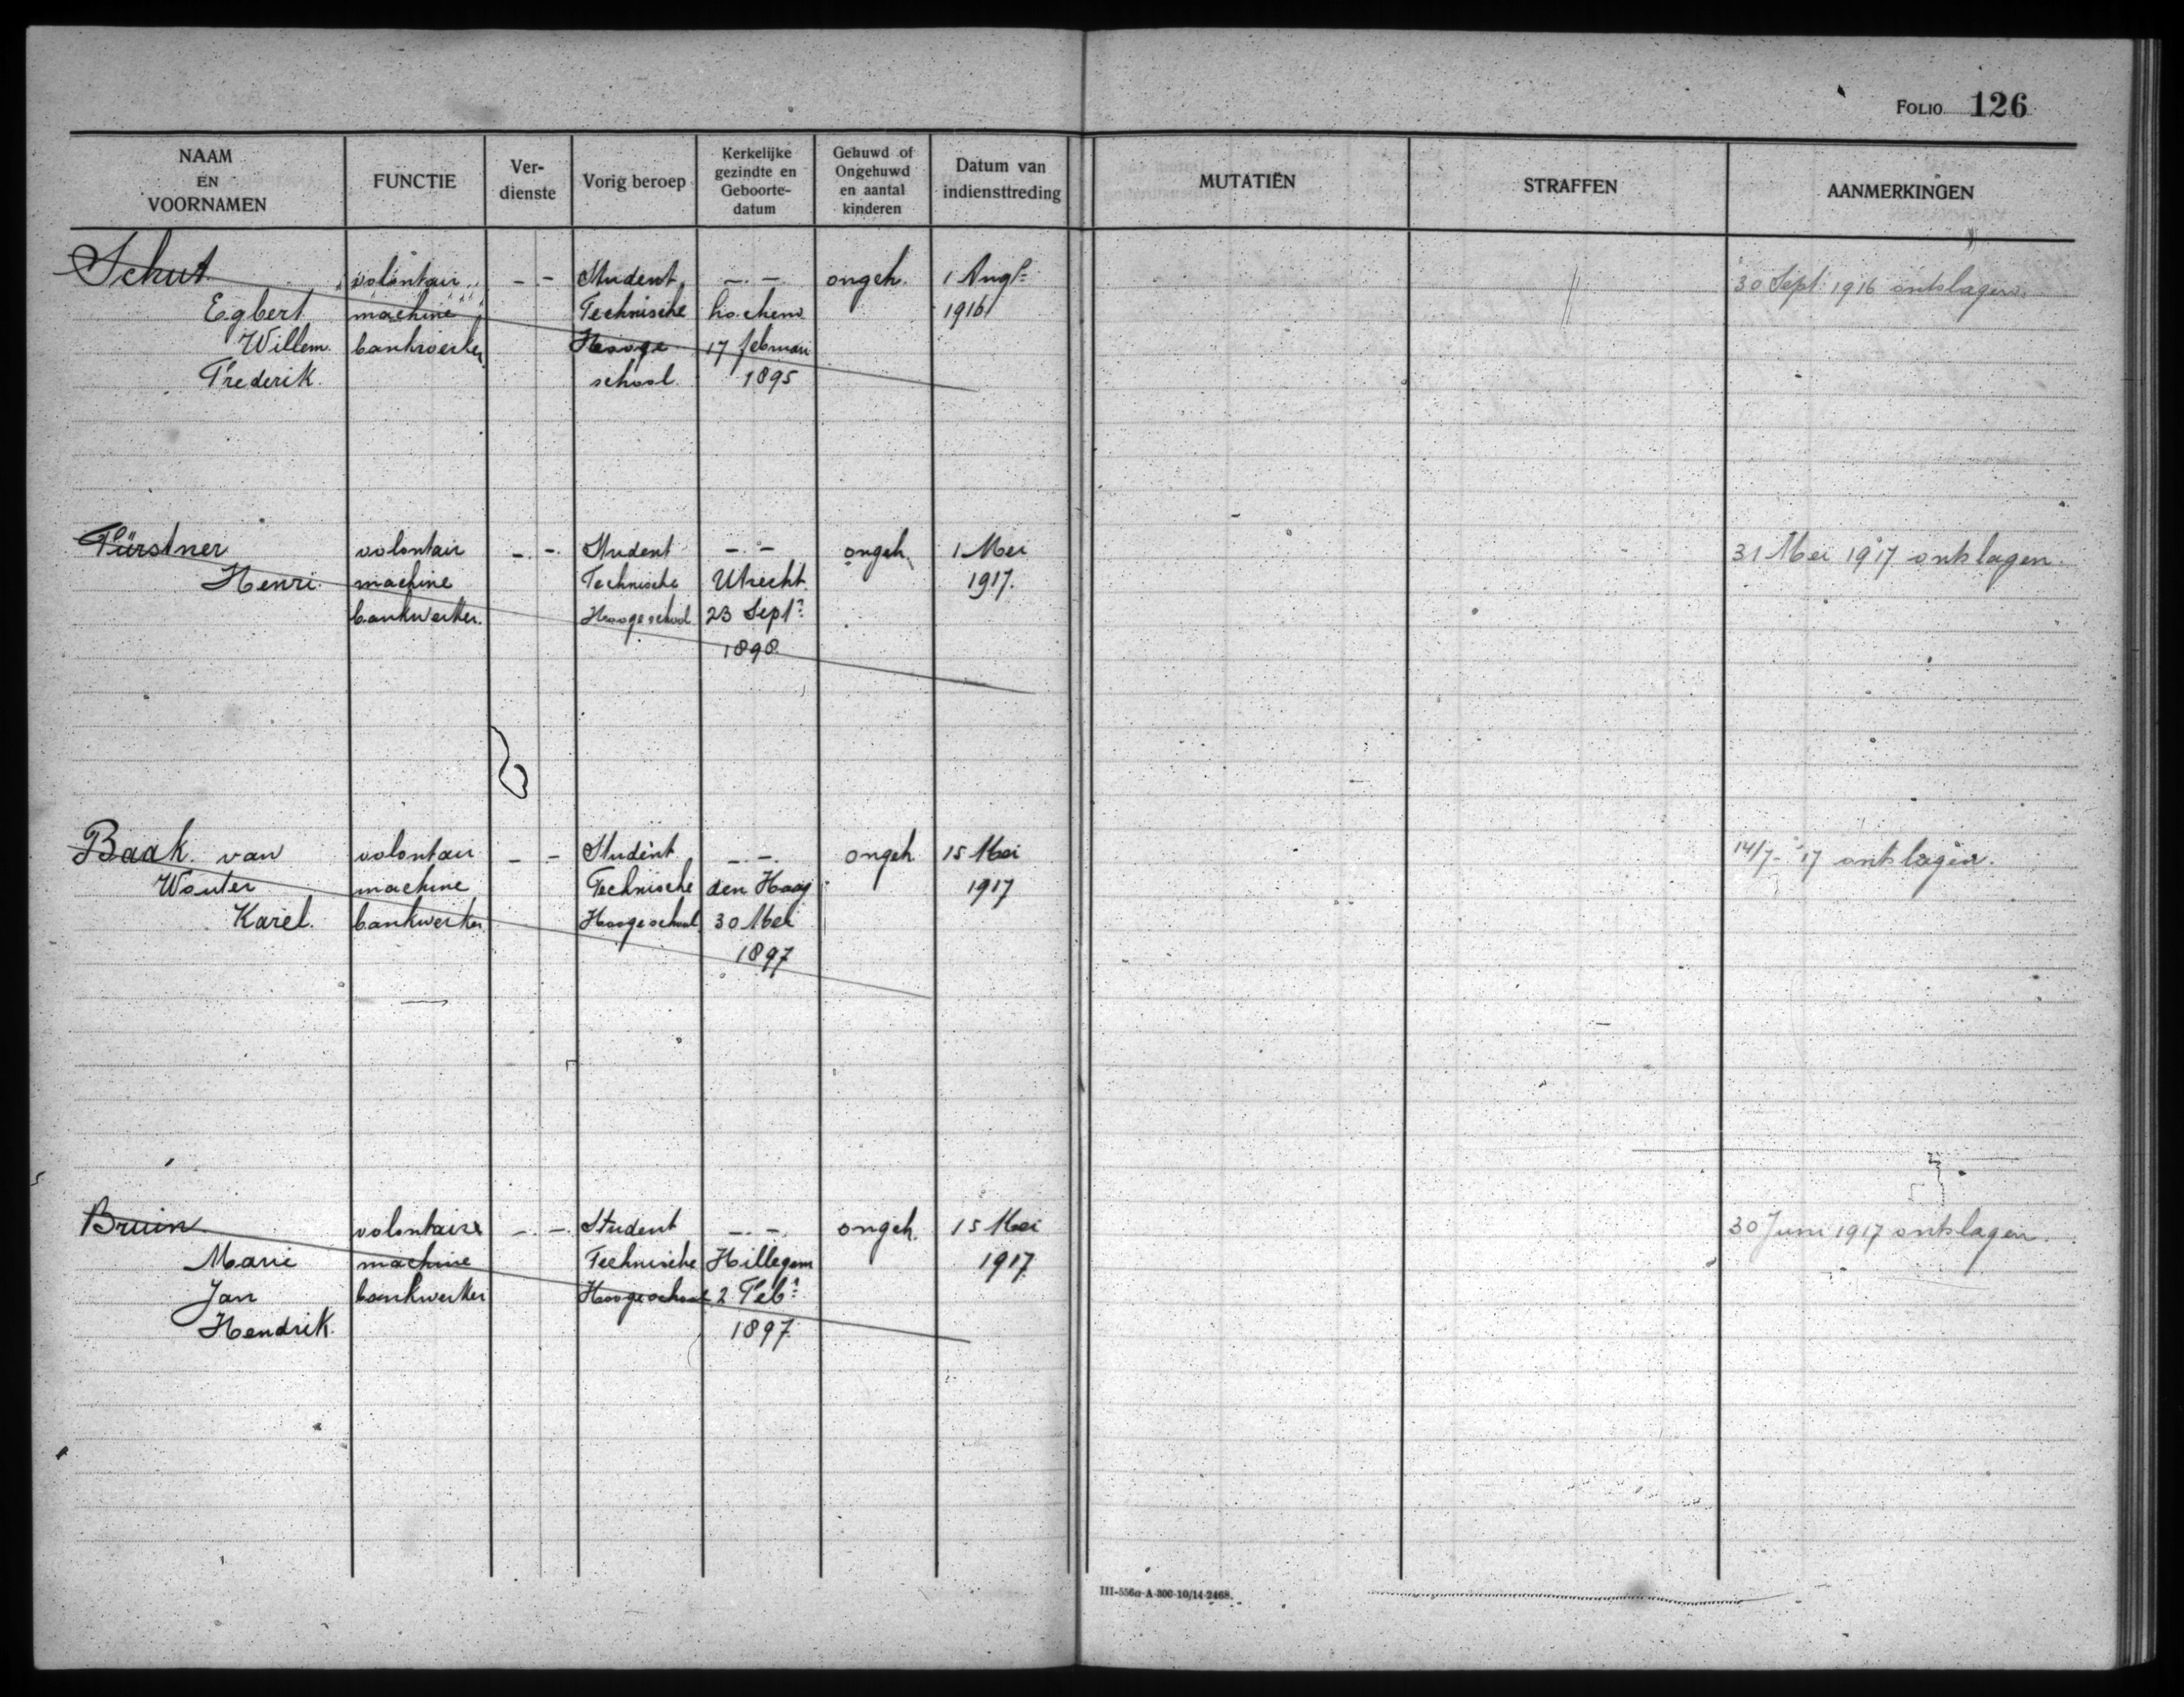 FOLIO 126
NAAM EN VOORNAMEN
FUNCTIE
Ver-dienste
Vorig beroep
Kerkelijke gezindte en Geboorte-datum
Gehuwd of Ongehuwd en aantal kinderen
Datum van indiensttreding
MUTATIËN
STRAFFEN
AANMERKINGEN
Schut volontair - - Student - - ongeh. 1 Augs 30 Sept. 1916 ontslagen.
Egbert machine Technische Lochem 1916
Willem bankwerker Hooge 17 februari
Frederik. school. 1895
Fürstner volontair - - Student - - ongeh. 1 Mei 31 Mei 1917 ontslagen.
Henri. machine Technische Utrecht. 1917.
bankwerker. Hoogeschool 23 Sept:
1898.
Baak. van volontair - - Student - - ongeh 15 Mei 14/7-'17 ontslagen.
Wouter machine Technische den Haag 1917
Karel. bankwerker Hoogeschool 30 Mei
1897
Bruin volontaire - - Student - - ongeh. 15 Mei 30 Juni 1917 ontslagen.
Marie machine Technische Hillegom 1917
Jan bankwerker Hoogeschool 2 Feb:
Hendrik. 1897
III-556a-A-300-10/14-2468.